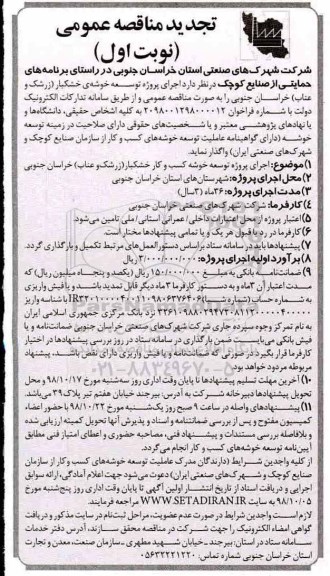 تجدید مناقصه عمومی
(نوبت اول)
شرکت شهرک‌های صنعتی استان خراسان جنوبی در راستای برنامه‌های
حمایتی از صنایع کوچک در نظر دارد اجرای پروژه توسعه خوشه‌ی خشکبار (زرشک و
عناب) خراسان جنوبی را به صورت مناقصه عمومی و از طریق سامانه تدارکات الکترونیک
دولت با شماره فراخوان به کلیه اشخاص حقیقی، دانشگاه‌ها و
یا نهادهای پژوهشی معتبر و یا شخصیت‌های حقوقی دارای صلاحیت در زمینه توسعه
خوشه (دارای گواهینامه عاملیت توسعه خوشه‌های کسب و کار از سازمان صنایع کوچک و
شهرک‌های صنعتی ایران) واگذار نماید.
۱) موضوع: اجرای پروژه توسعه خوشه کسب و کار خشکبار (زرشک و عناب) خراسان جنوبی
۲) محل اجرای پروژه: شهرستان‌های استان خراسان جنوبی
۳) مدت اجرای پروژه: ۳۶ ماه (۳ سال)
۴) کارفرما: شرکت شهرک‌های صنعتی خراسان جنوبی
۵) اعتبار پروژه از محل اعتبارات داخلی/ عمرانی استانی/ ملی تامین می‌شود.
۶) کارفرما در رد یا قبول هر یک و یا تمامی پیشنهادها مختار است.
۷) پیشنهادها باید در سامانه ستاد براساس دستورالعمل‌های مرتبط تکمیل و بارگذاری گردد.
۸) برآورد اولیه اجرای پروژه: ۳/۰۰۰/۰۰۰/۰۰۰ ریال
۹) ضمانت‌نامه بانکی به مبلغ ۱۵۰/۰۰۰/۰۰۰ ریال (یکصد و پنجاه میلیون ریال) که
مدت اعتبار آن ۳ ماه و به دستور کارفرما ۳ ماه دیگر قابل تمدید باشد و یا فیش واریزی
به شماره حساب (شماره شبا) با شناسه واریز
نزد بانک مرکزی جمهوری اسلامی ایران
به نام تمرکز وجوه سپرده جاری شرکت شهرک‌های صنعتی خراسان جنوبی ضمانت‌نامه و یا
فیش بانکی می‌بایست ضمن بارگذاری در سامانه ستاد در روز بررسی پیشنهادها در اختیار
کارفرما قرار بگیرد در صورتی که ضمانت‌نامه و یا فیش واریزی دارای نقص باشد، پیشنهاد
مربوطه مردود خواهد بود.
۱۰) آخرین مهلت تسلیم پیشنهادها تا پایان وقت اداری روز سه‌شنبه مورخ ۹۸/۱۰/۱۷ و محل
تحویل پیشنهادها دبیرخانه شرکت به آدرس: بیرجند خیابان هفتم تیر پلاک ۳۹ می‌باشد.
۱۱) پیشنهادهای واصله در ساعت ۹ صبح روز یکشنبه مورخ ۹۸/۱۰/۲۲ با حضور اعضاء
کمیسیون مفتوح و پس از بررسی ضمانتنامه و اسناد و پذیرش آنها تحویل کمیته ارزیابی شده
و بلافاصله بررسی مستندات و پیشنهاد فنی، مصاحبه حضوری و اعطای امتیاز فنی مطابق
آیین‌نامه توسعه خوشه‌های کسب و کار انجام می‌گردد.
از کلیه واجدین شرایط (دارندگان مدرک عاملیت توسعه خوشه‌های کسب و کار از سازمان
صنایع کوچک و شهرک‌های صنعتی ایران) دعوت می‌شود جهت اعلام آمادگی، ارائه سوابق
اجرایی و دریافت اسناد از تاریخ انتشار اولین آگهی تا پایان وقت اداری روز پنجشنبه مورخ
۹۸/۱۰/۰۵ به سایت WWW.SETADIRAN.IR مراجعه فرمایند.
لازم است واجدین شرایط در صورت عدم عضویت، مراحل ثبت‌نام در سایت مذکور و دریافت
گواهی امضاء الکترونیک را جهت شرکت در مناقصه محقق سازند، آدرس دفتر خدمات
سامانه ستاد در استان: بیرجند - خیابان شهید مطهری - سازمان صنعت، معدن و تجارت
استان خراسان جنوبی شماره تماس: ۰۵۶۳۲۲۲۱۲۲۰